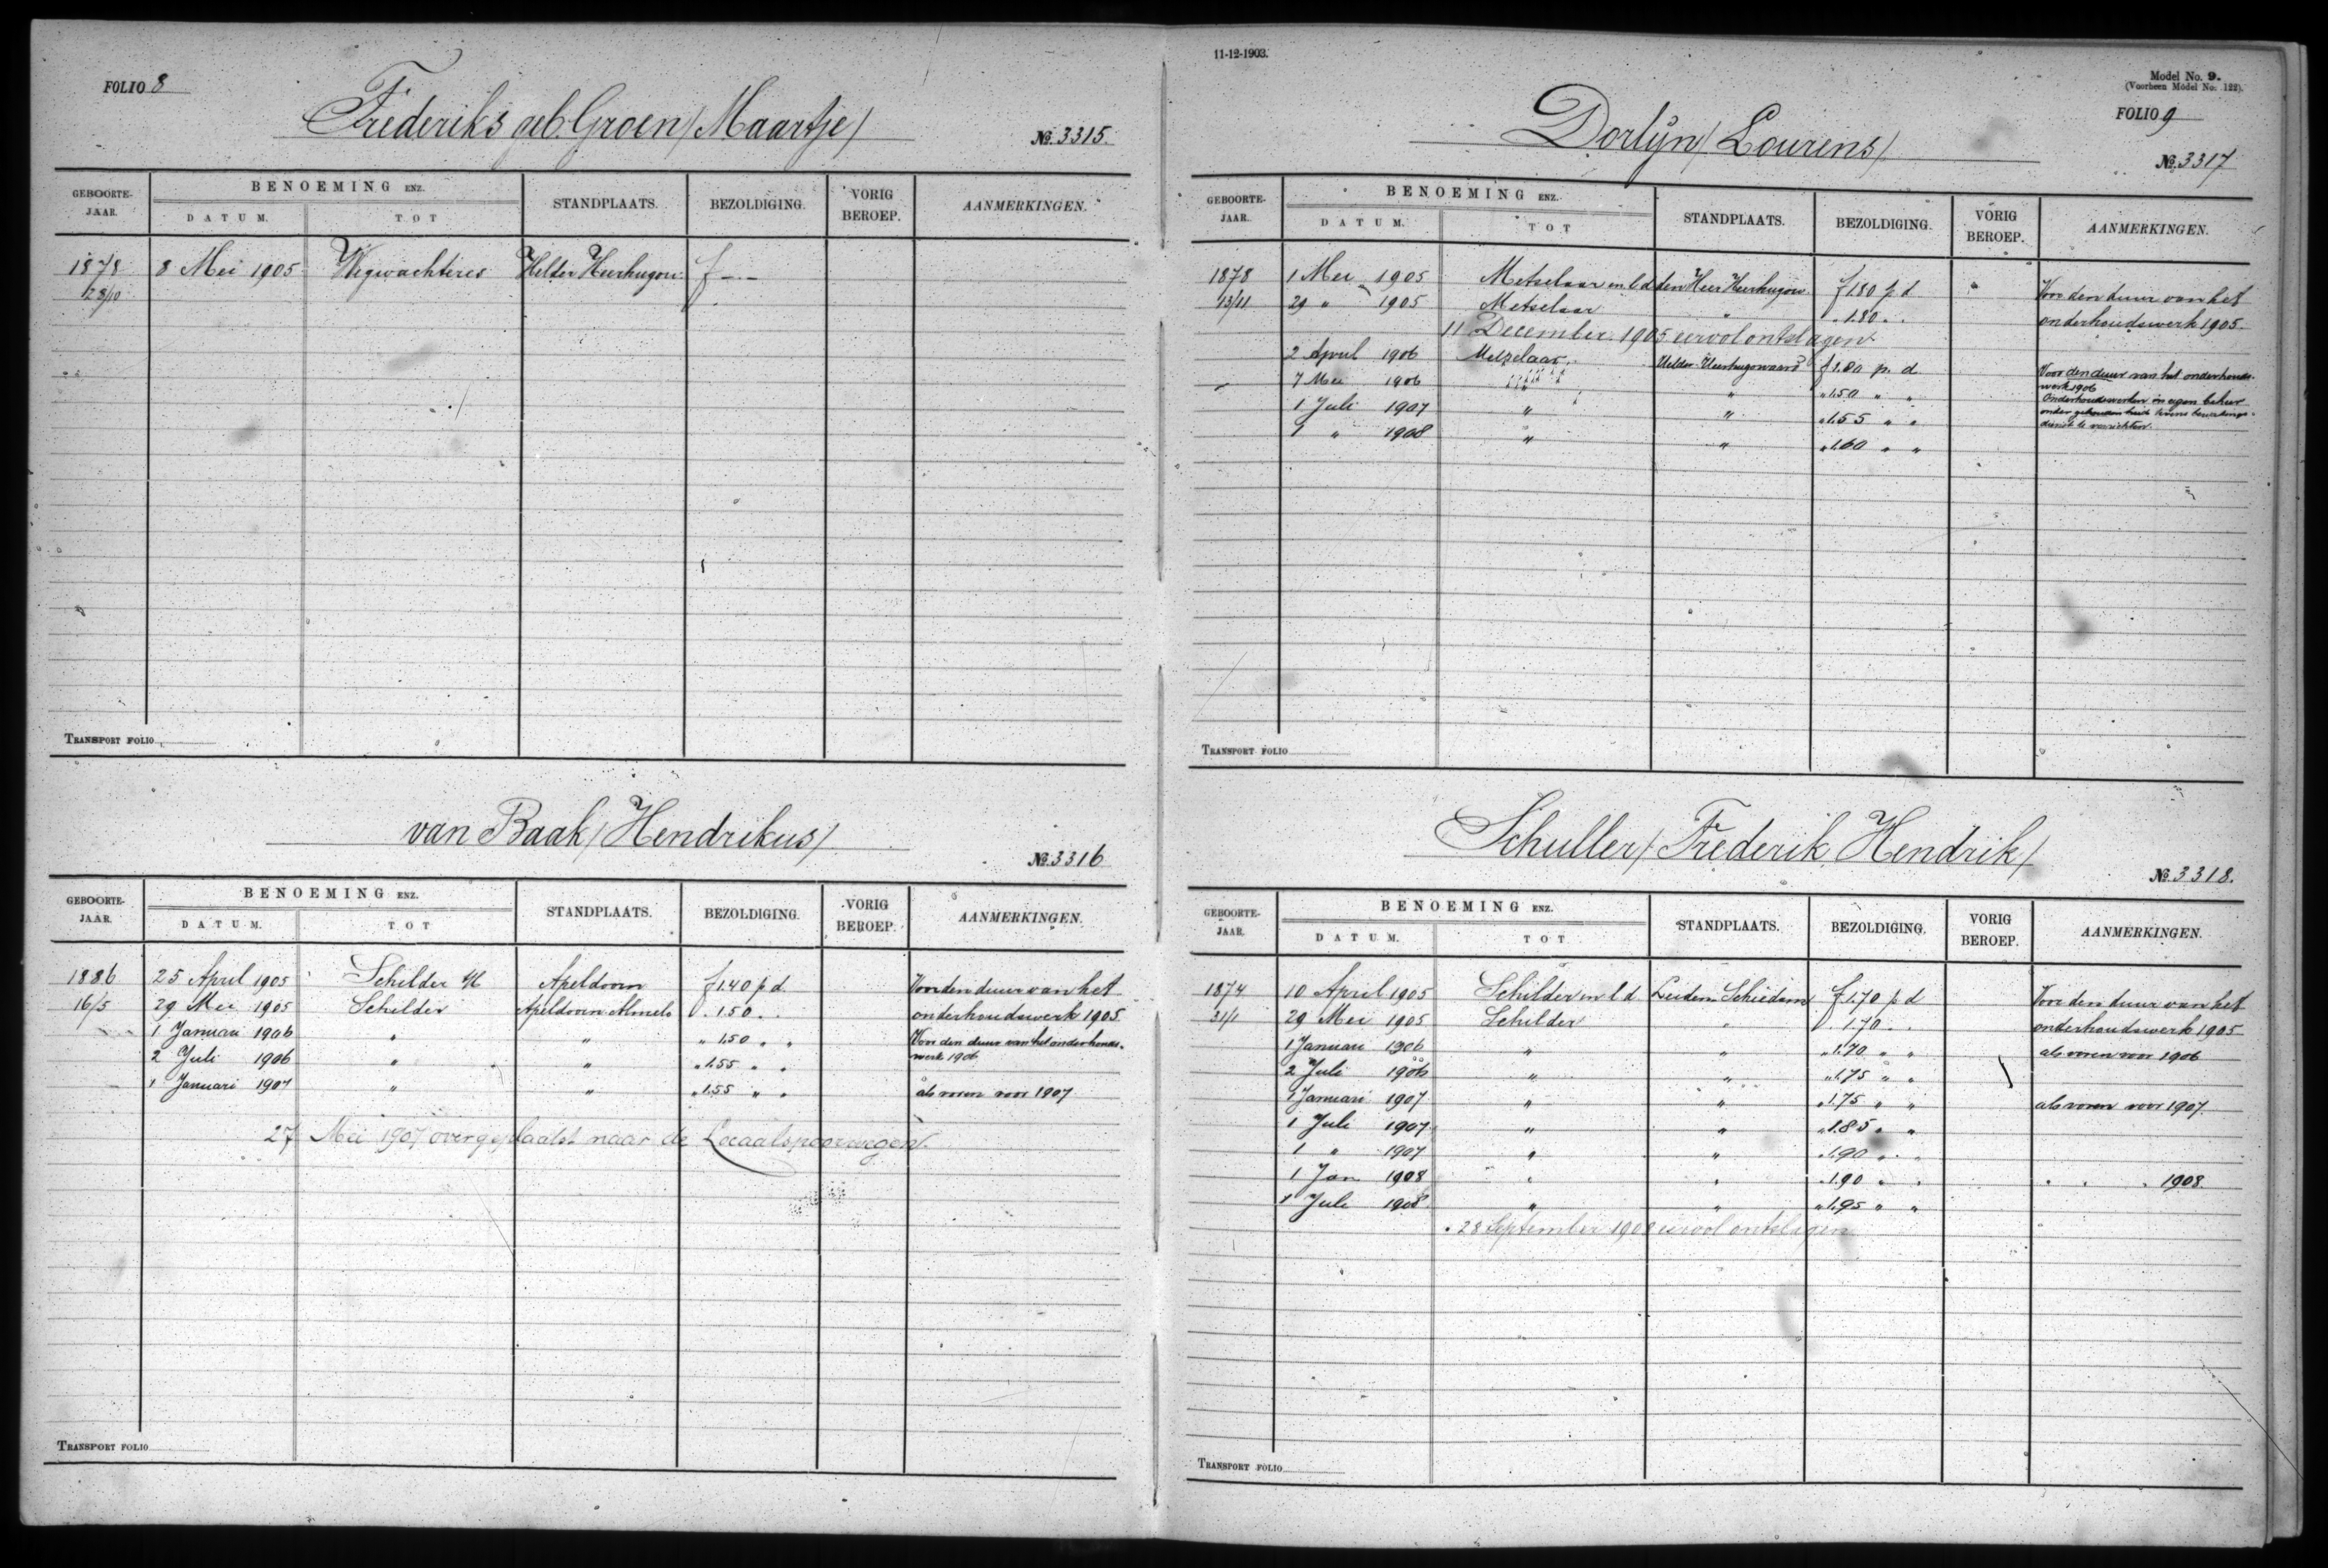 FOLIO 8
Frederiks geb. Groen (Maartje)
No. 3315.
GEBOORTE-JAAR. BENOEMING ENZ. DATUM. TOT STANDPLAATS. BEZOLDIGING. VORIG BEROEP. AANMERKINGEN.
1878 8 Mei 1905 Wegwachteres Helder Heerhugow. f -.-
28/10
TRANSPORT FOLIO
van Baak (Hendrikus)
No. 3316
GEBOORTE-JAAR. BENOEMING ENZ. DATUM. TOT STANDPLAATS. BEZOLDIGING. VORIG BEROEP. AANMERKINGEN.
1886 25 April 1905 Schilder Apeldoorn f 1.40 p d Voor den duur van het
16/5 29 Mei 1905 Schilder Apeldoorn Almelo " 1.50 " " onderhoudswerk 1905.
1 Januari 1906 " " " 1.50 " " Voor den duur van het onderhouds-
werk 1906
2 Juli 1906 " " " 1.55 " "
1 Januari 1907 " " " 1.55 " " als voren voor 1907
27 Mei 1907 overgeplaatst naar de Locaalspoorwegen.
TRANSPORT FOLIO
11-12-1903.
Model No. 9.
(Voorheen Model No. 122).
FOLIO 9
Dorlijn (Lourens)
No. 3317
GEBOORTE-JAAR. BENOEMING ENZ. DATUM. TOT STANDPLAATS. BEZOLDIGING. VORIG BEROEP. AANMERKINGEN.
1878 1 Mei 1905 Metselaar in l d Heerhugow. f 1.80 p d Voor den duur van het
13/11 29 " 1905 Metselaar " " 1.80 " " onderhoudswerk 1905.
11 December 1905 eervol ontslagen
2 April 1906 Metselaar Helder Heerhugowaard f 1.80 p. d Voor den duur van het onderhouds-
werk 1906
7 Mei 1906 " " " 1.50 " " Onderhoudswerken in eigen beheer
1 Juli 1907 " " " 1.55 " "
dienst te verrichten.
1 " 1908 " " " 1.60 " "
TRANSPORT FOLIO
Schuller (Frederik Hendrik)
No. 3318.
GEBOORTE-JAAR. BENOEMING ENZ. DATUM. TOT STANDPLAATS. BEZOLDIGING. VORIG BEROEP. AANMERKINGEN.
1874 10 April 1905 Schilder in l d Leiden Schiedam f 1.70 p d Voor den duur van het
31/1 29 Mei 1905 Schilder " " 1.70 " " onderhoudswerk 1905
1 Januari 1906 " " " 1.70 " " als voren voor 1906
2 Juli 1906 " " " 1.75 " "
1 Januari 1907 " " " 1.75 " " als voren voor 1907.
1 Juli 1907 " " " 1.85 " "
1 " 1907 " " " 1.90 " "
1 Jan 1908 " " " 1.90 " " " " " 1908.
1 Juli 1908 " " " 1.95 " "
28 September 1908 eervol ontslagen
TRANSPORT FOLIO